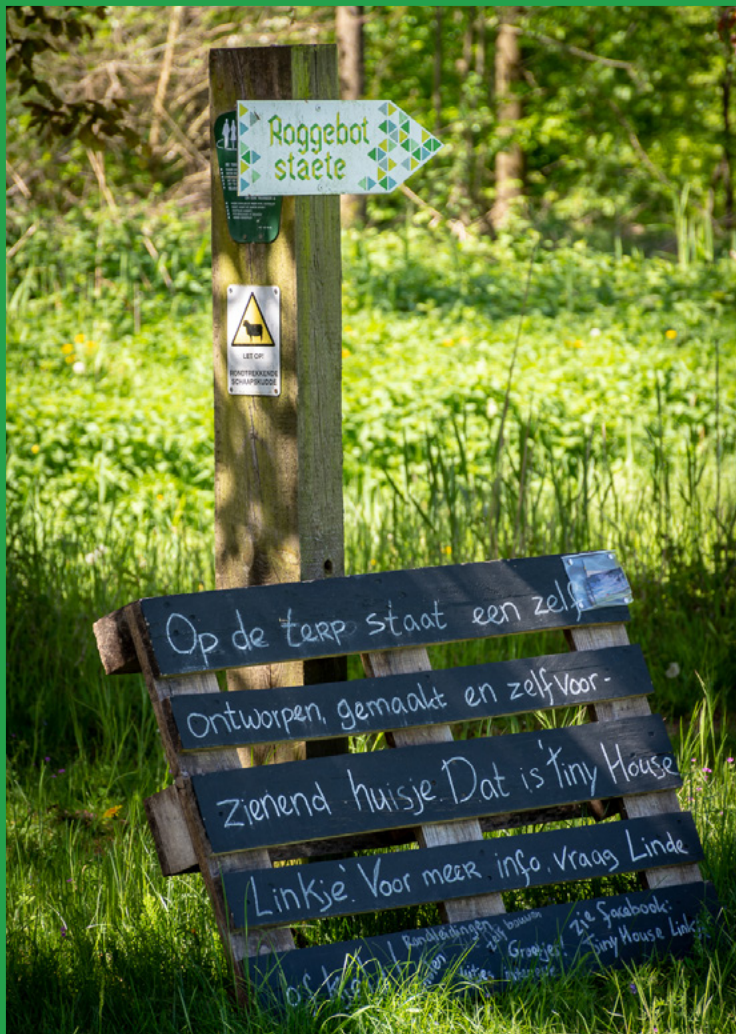 Roggebot
staete
LET OP!
RONDTREKKENDE
SCHAAPSKUDDE
Op de terp staat een zelf
ontworpen, gemaakt en zelfvoor-
zienend huisje Dat is 'Tiny House
Linkje'. Voor meer info, vraag Linde
Rondleidingen
zelf bouwen
Groetjes!
zie facebook:
Tiny House Link